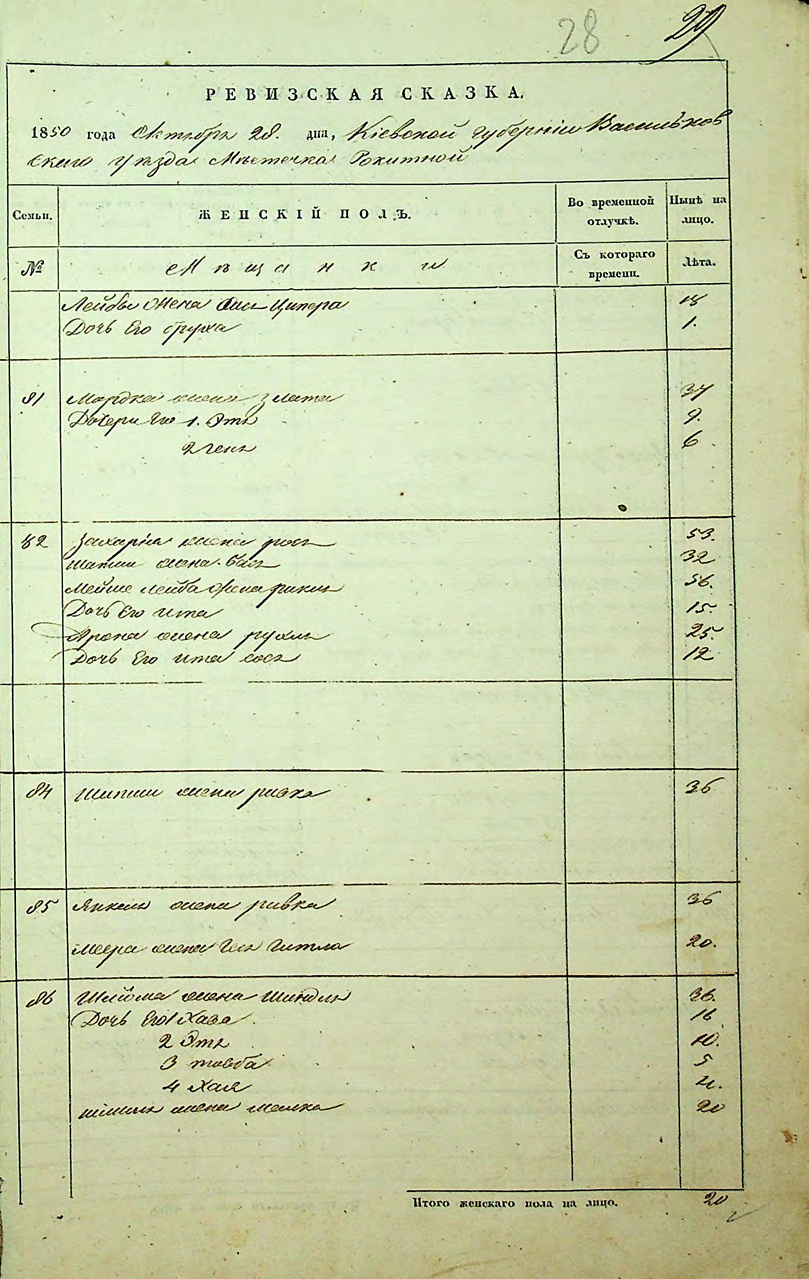 28 29
РЕВИЗСКАЯ СКАЗКА.
1850 года Октября 28. дня, Кіевской Губерніи Васильков
скаго уѣзда Мѣстечка Рокитной
Семьи. ЖЕНСКІЙ ПОЛЪ. Во временной отлучкѣ. Нынѣ на лицо.
№ Мѣщанки Съ котораго времени. Лѣта.
Лейбы жена Ципера 18
Дочь Его Фрума 1.
81 Мордка жена Злата 37
Дочери Его 1. Этя 9.
2 Геня 6
82 Захарія жена Рося 53.
Шапши жена Бася 32
Мейше Лейба жена Рикля 56.
Дочь Его Ита 15.
Арона жена Рухля 25.
Дочь Его Ита Сося 12
84 Шапши жена Ривка 36
85 Янкеля жена Ривка 36
Меера жена Геня Гитла 20.
86 Шлйома жена Шиндля 36.
Дочь Его 1 Хава 16
2 Этя 10.
3 Товба 5
4 Хая 4.
жена Малка 20
Итого женскаго пола на лицо. 20